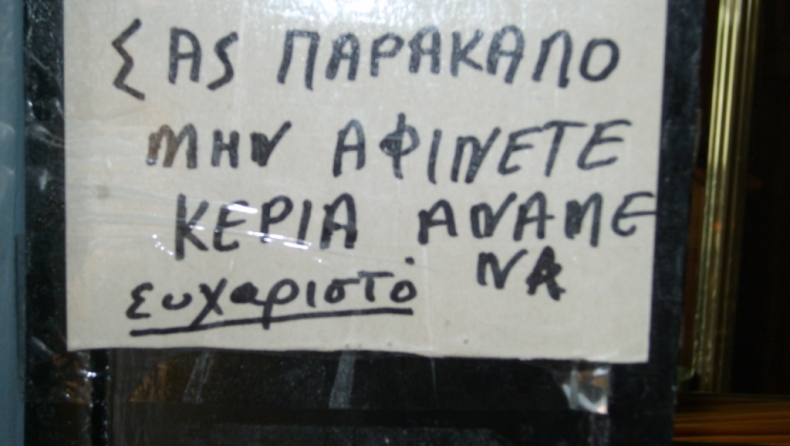 ΣΑς ΠΑΡΑΚΑΛΟ
ΜΗΝ ΑΦΙΝΕΤΕ
ΚΕΡΙΑ ΑΝΑΜΕ
ΝΑ
ευχαριστό